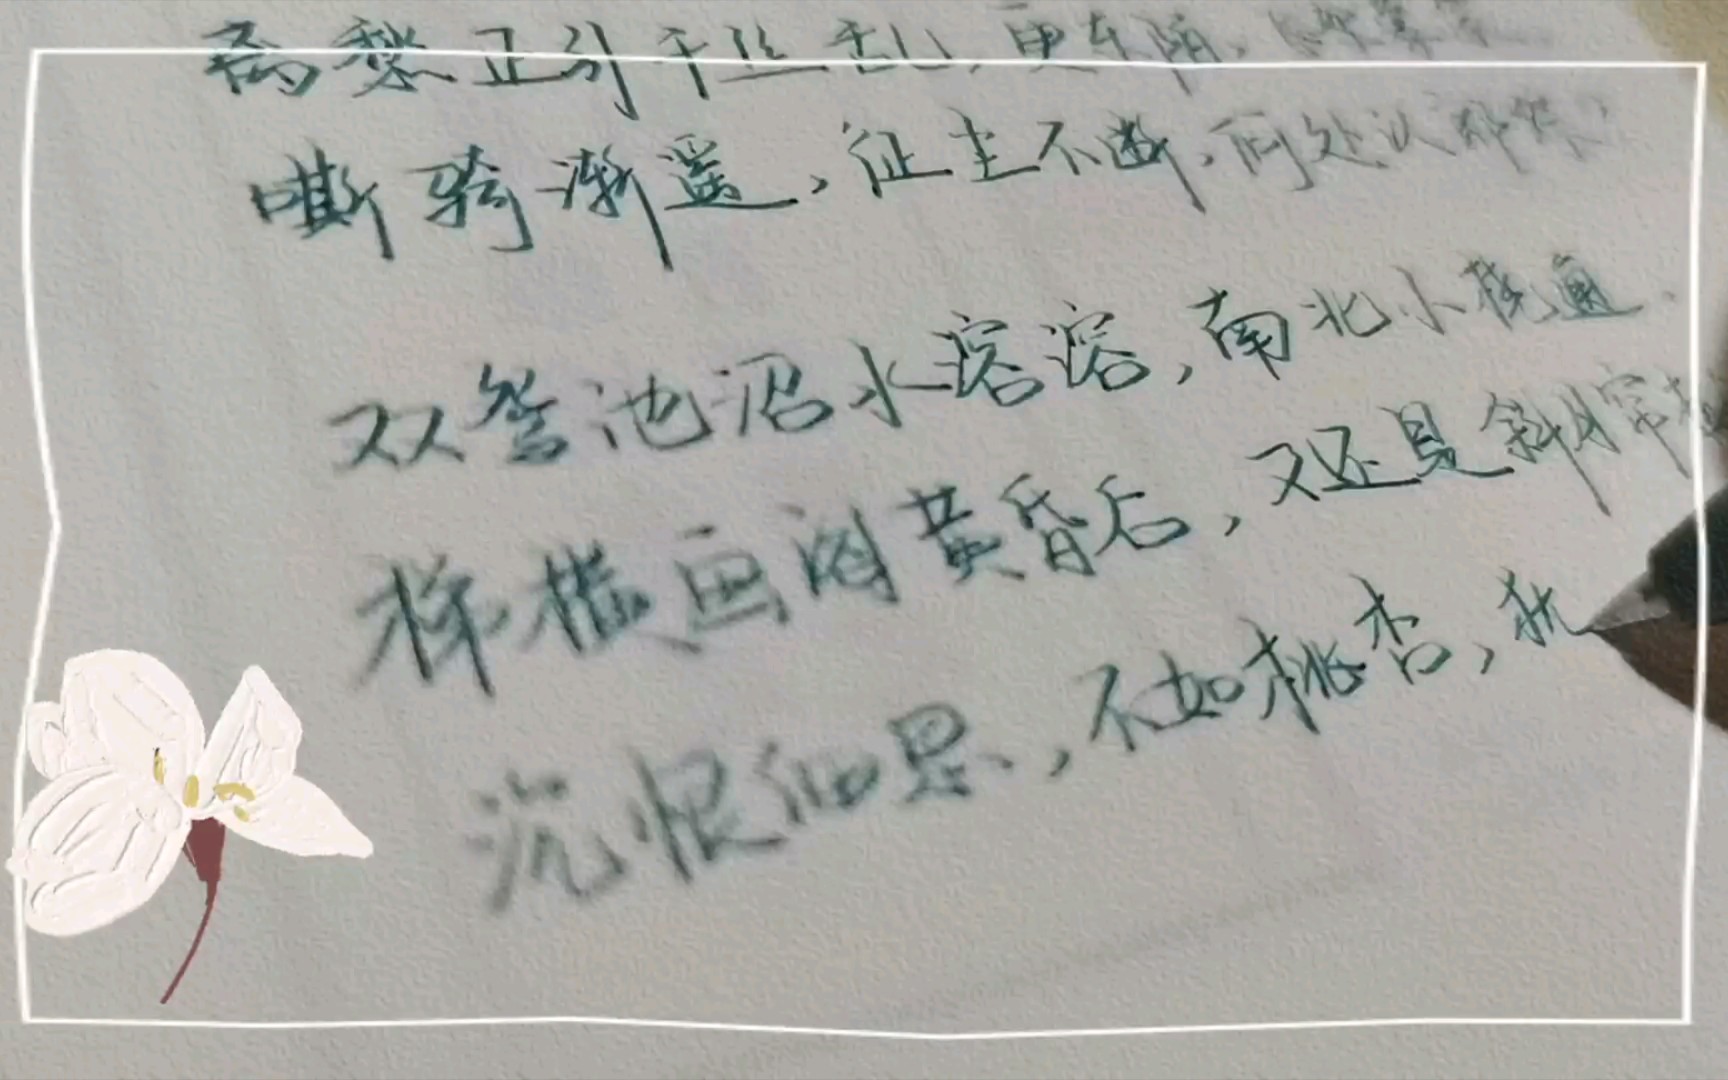 离愁正引千丝乱，更东陌，飞絮蒙蒙
嘶骑渐遥，征尘不断，何处认郎踪
双鸳池沼水溶溶，南北小桡通
梯横画阁黄昏后，又还是斜月帘
沉恨细思，不如桃杏，犹